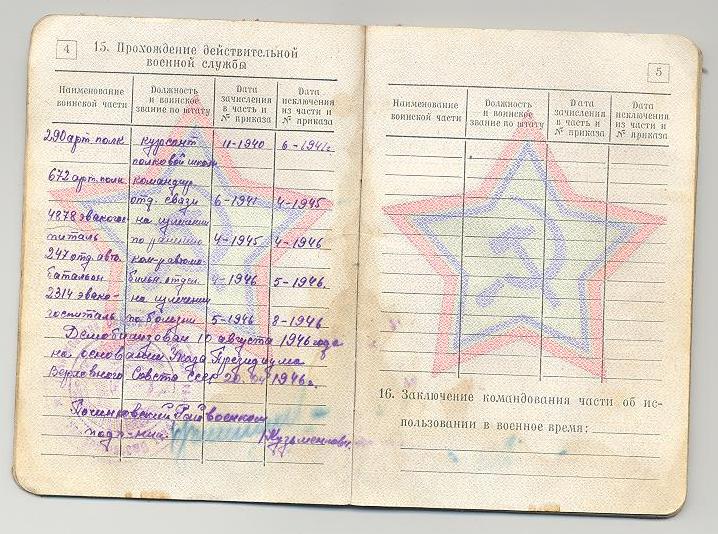 4
15. Прохождение действительной
военной службы
Наименование воинской части
Должность и воинское звание по штату
Дата зачисления в часть и № приказа
Дата исключения из части и № приказа
290 арт. полк курсант 11-1940 6-1941.
полковой школы
672 арт. полк командир
отд. связи 6-1941 4-1945
4878 эвакогос- на излечении
питаль по ранению 4-1945 4-1946
247 отд. авто. ком-р автомо-
батальон бильн. отдел. 4-1946 5-1946.
2314 эвако- на излечении
госпиталь по болезни 5-1946 8-1946
Демобилизован 10 августа 1946 года
на основании Указа Президиума
Верховного Совета СССР 20. 1946г.
Починковский Райвоенком
подп-ник
5
Наименование воинской части
Должность и воинское звание по штату
Дата зачисления в часть и № приказа
Дата исключения из части и № приказа
16. Заключение командования части об ис-
пользовании в военное время: